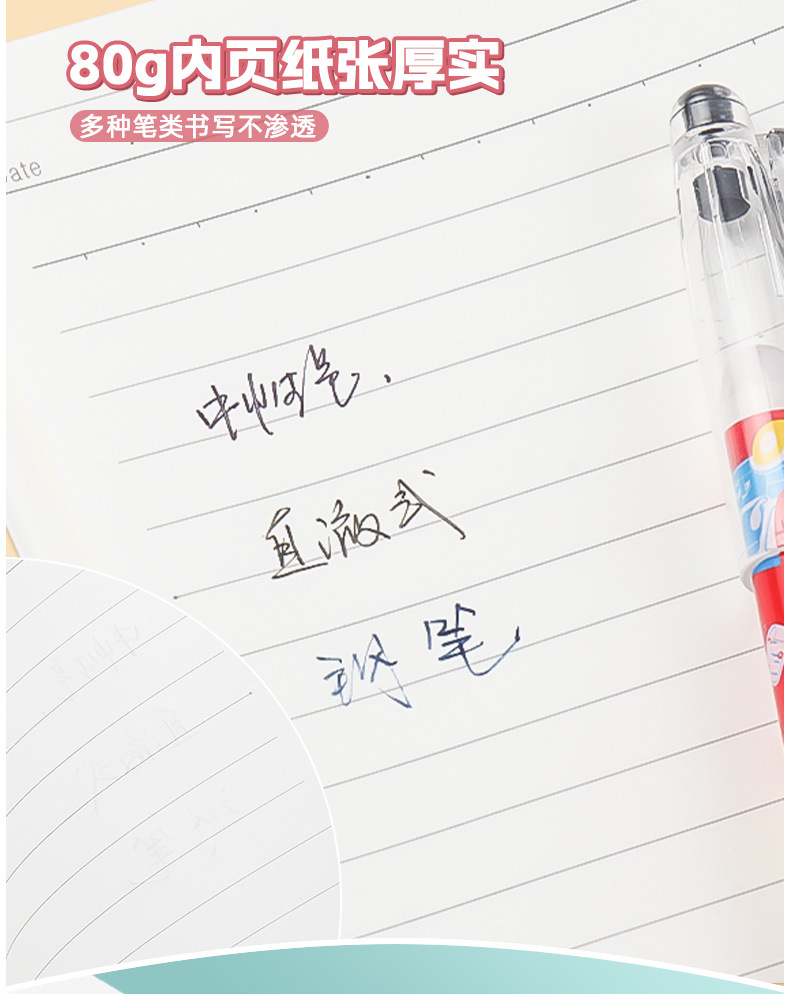 80g内页纸张厚实
多种笔类书写不渗透
ate
中性笔.
直液式
钢笔